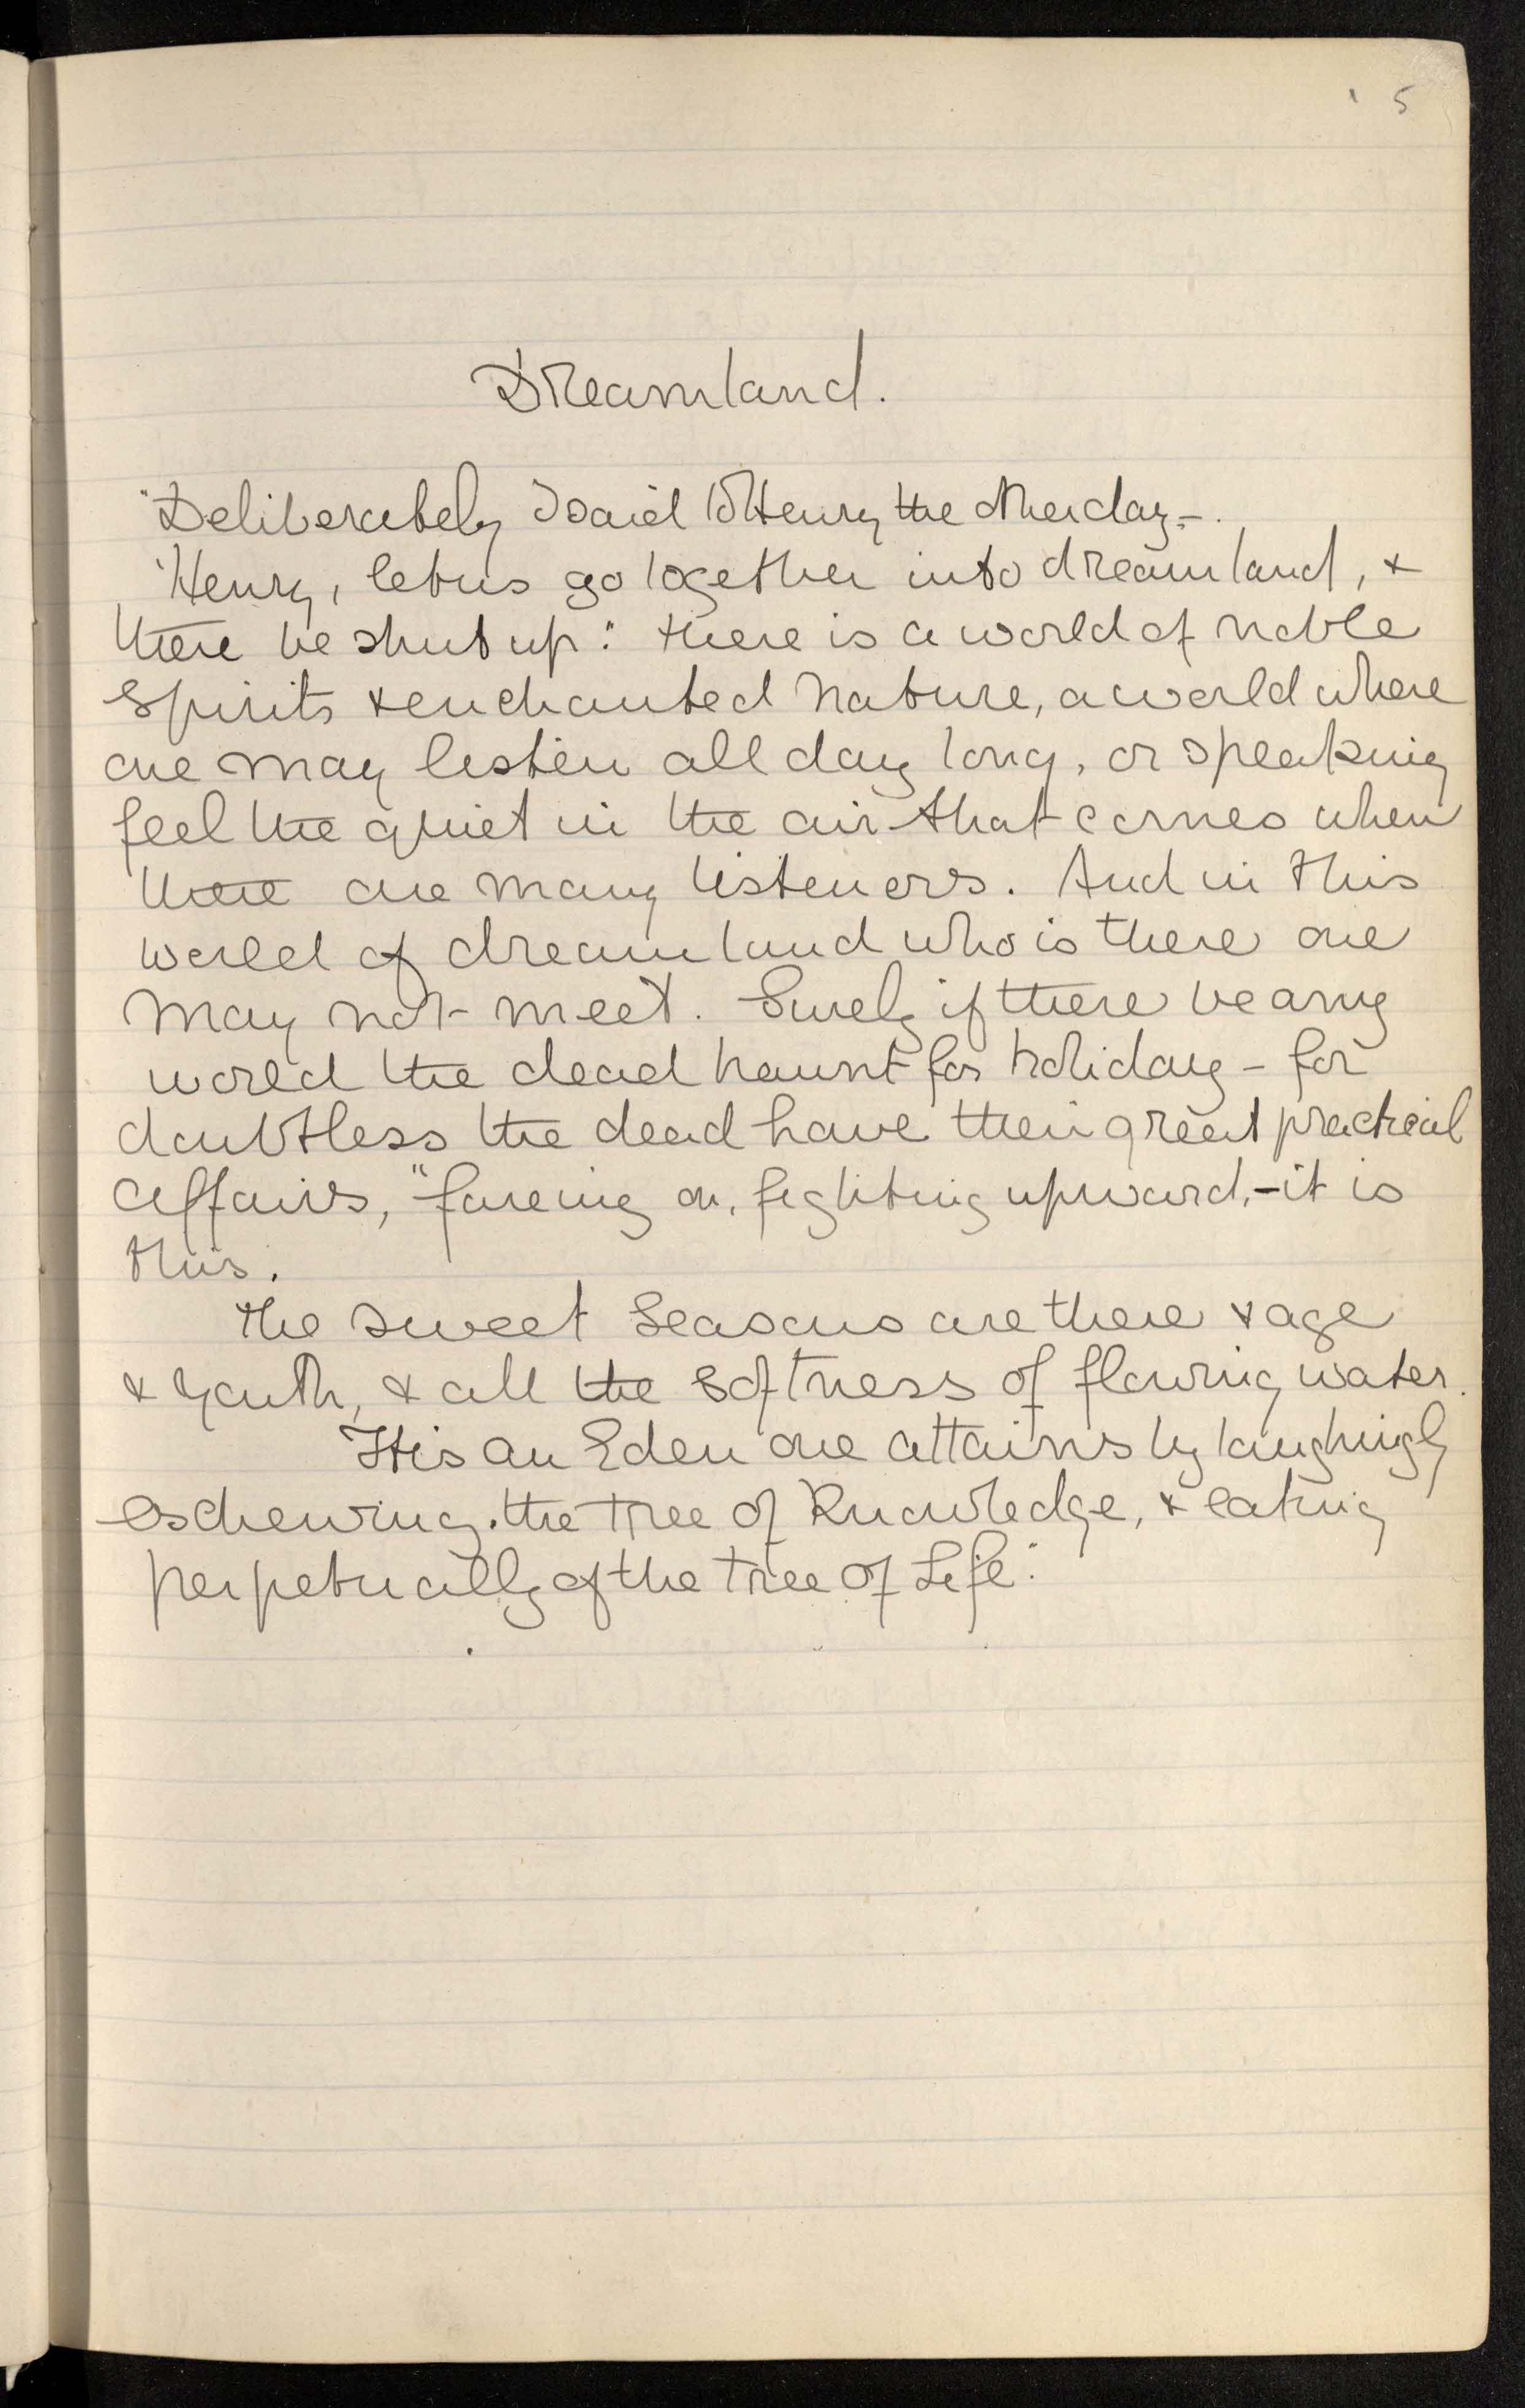 5
Dreamland.
"Deliberately I said to Henry the other day, -.
'Henry, let us go together into dreamland, &
there be shut up." There is a world of noble
spirits & enchanted nature, a world where
one may listen all day long, or speaking
feel the quiet in the air that comes when
there are many listeners. And in this
world of dreamland who is there one
may not meet. Surely if there be any
world the dead haunt for holiday - for
doubtless the dead have their great practical
affairs, "fareing on, fighting upward, - it is
this.
The sweet seasons are there & age
& youth, & all the softness of flowing water.
It is an Eden one attains by laughingly
eschewing the tree of Knowledge, & eating
perpetually of the tree of Life."